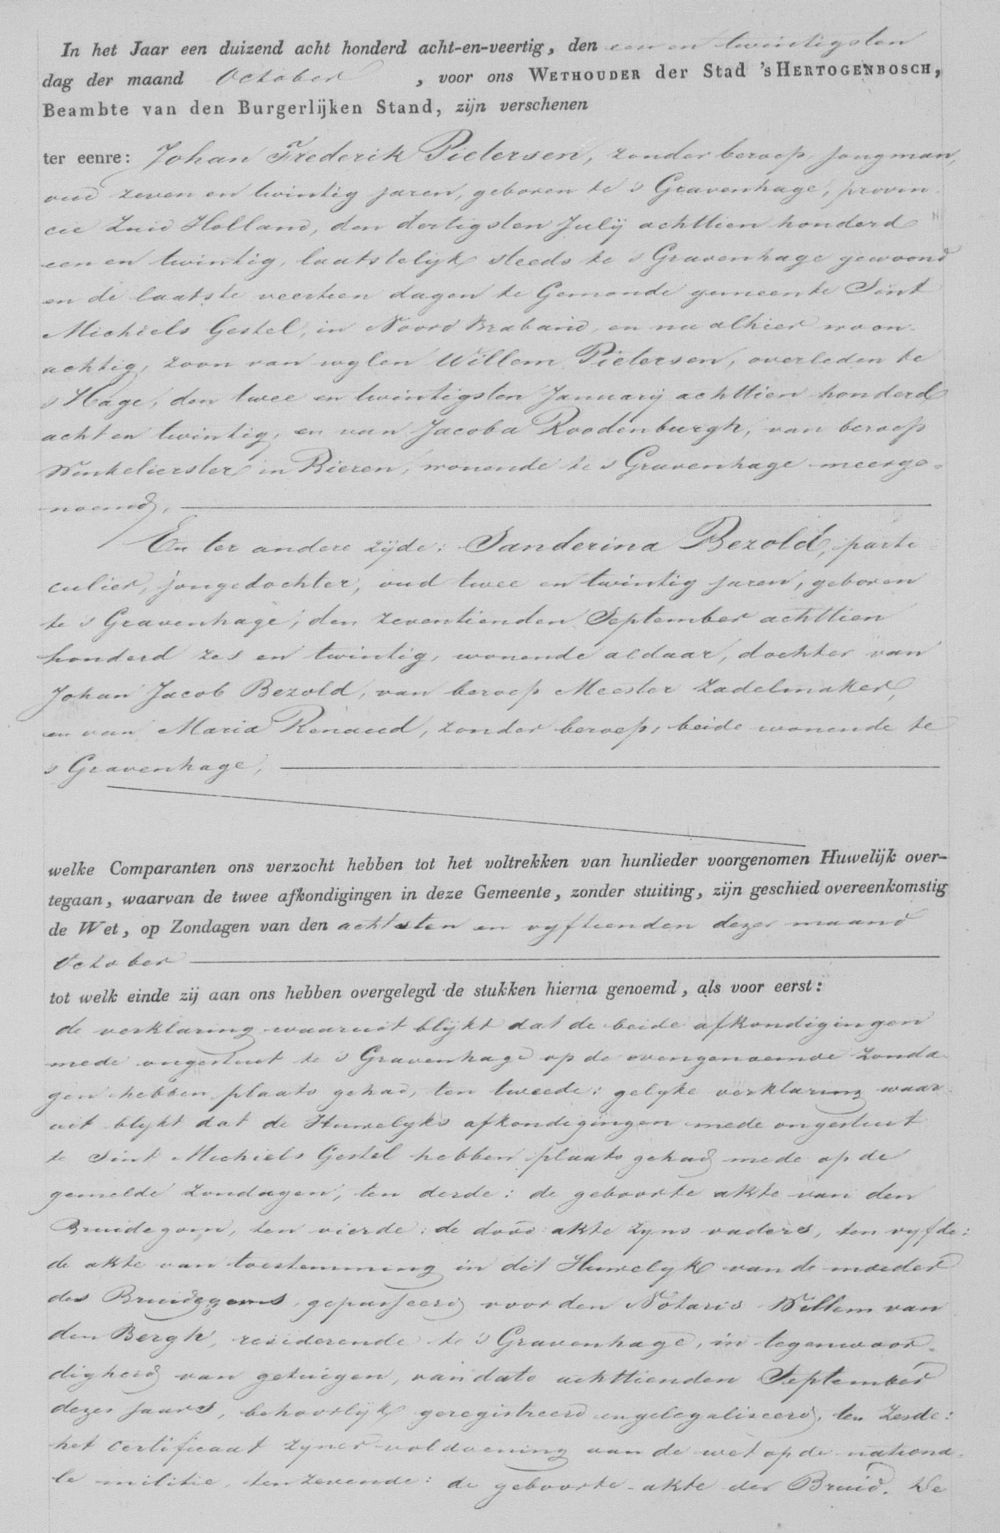 In het Jaar een duizend acht honderd acht-en-veertig, den een en twintigsten
dag der maand October , voor ons WETHOUDER der Stad 's HERTOGENBOSCH,
Beambte van den Burgerlijken Stand, zijn verschenen
ter eenre: Johan Frederik Pietersen, zonder beroep, jongman,
oud zeven en twintig jaren, geboren te s Gravenhage, provin-
cie Zuid Holland, den dertigsten Julij achttien honderd
een en twintig, laatstelijk steeds te s Gravenhage gewoond
en de laatste veertien dagen te Gemonde gemeente Sint
Michiels Gestel, in Noord Braband, en nu alhier woon-
achtig, zoon van wylen Willem Pietersen, overleden te
s Hage, den twee en twintigsten January achttien honderd
acht en twintig, en van Jacoba Roodenburgh, van beroep
Winkelierster in Bieren, wonende te s Gravenhage meerge-
noemd,
En ter andere zyde: Sanderina Bezold, parti
culier, jongedochter, oud twee en twintig jaren, geboren
te s Gravenhage, den zeventienden September achttien
honderd zes en twintig, wonende aldaar, dochter van
Johan Jacob Bezold, van beroep Meester Zadelmaker,
en van Maria Renaud, zonder beroep, beide wonende te
s Gravenhage,
welke Comparanten ons verzocht hebben tot het voltrekken van hunlieder voorgenomen Huwelijk over-
tegaan, waarvan de twee afkondigingen in deze Gemeente, zonder stuiting, zijn geschied overeenkomstig
de Wet, op Zondagen van den achtsten en vyftienden dezer maand
October
tot welk einde zij aan ons hebben overgelegd de stukken hierna genoemd, als voor eerst:
de verklaring waaruit blijkt dat de beide afkondigingen
mede ongestuit te s Gravenhage op de overgenoemde Zonda-
gen hebben plaats gehad, ten tweede: gelyke verklaring waar-
uit blykt dat de Huwelyks afkondigingen mede ongestuit
te Sint Michiels Gestel hebben plaats gehad mede op de
gemelde Zondagen, ten derde: de geboorte akte van den
Bruidegom, ten vierde: de dood akte zyns vaders, ten vyfde:
de akte van toestemming in dit Huwelyk van de moeder
des Bruidegoms, gepasseerd voor den Notaris Willem van
den Bergh, residerende te s Gravenhage, in tegenwoor-
digheid van getuigen, van dato achttienden September
dezes jaars, behoorlijk geregistreerd en gelegaliseerd, ten zesde:
het certificaat zyner voldoening aan de wet op de nationa-
le militie, ten zevende: de geboorte-akte der Bruid. De